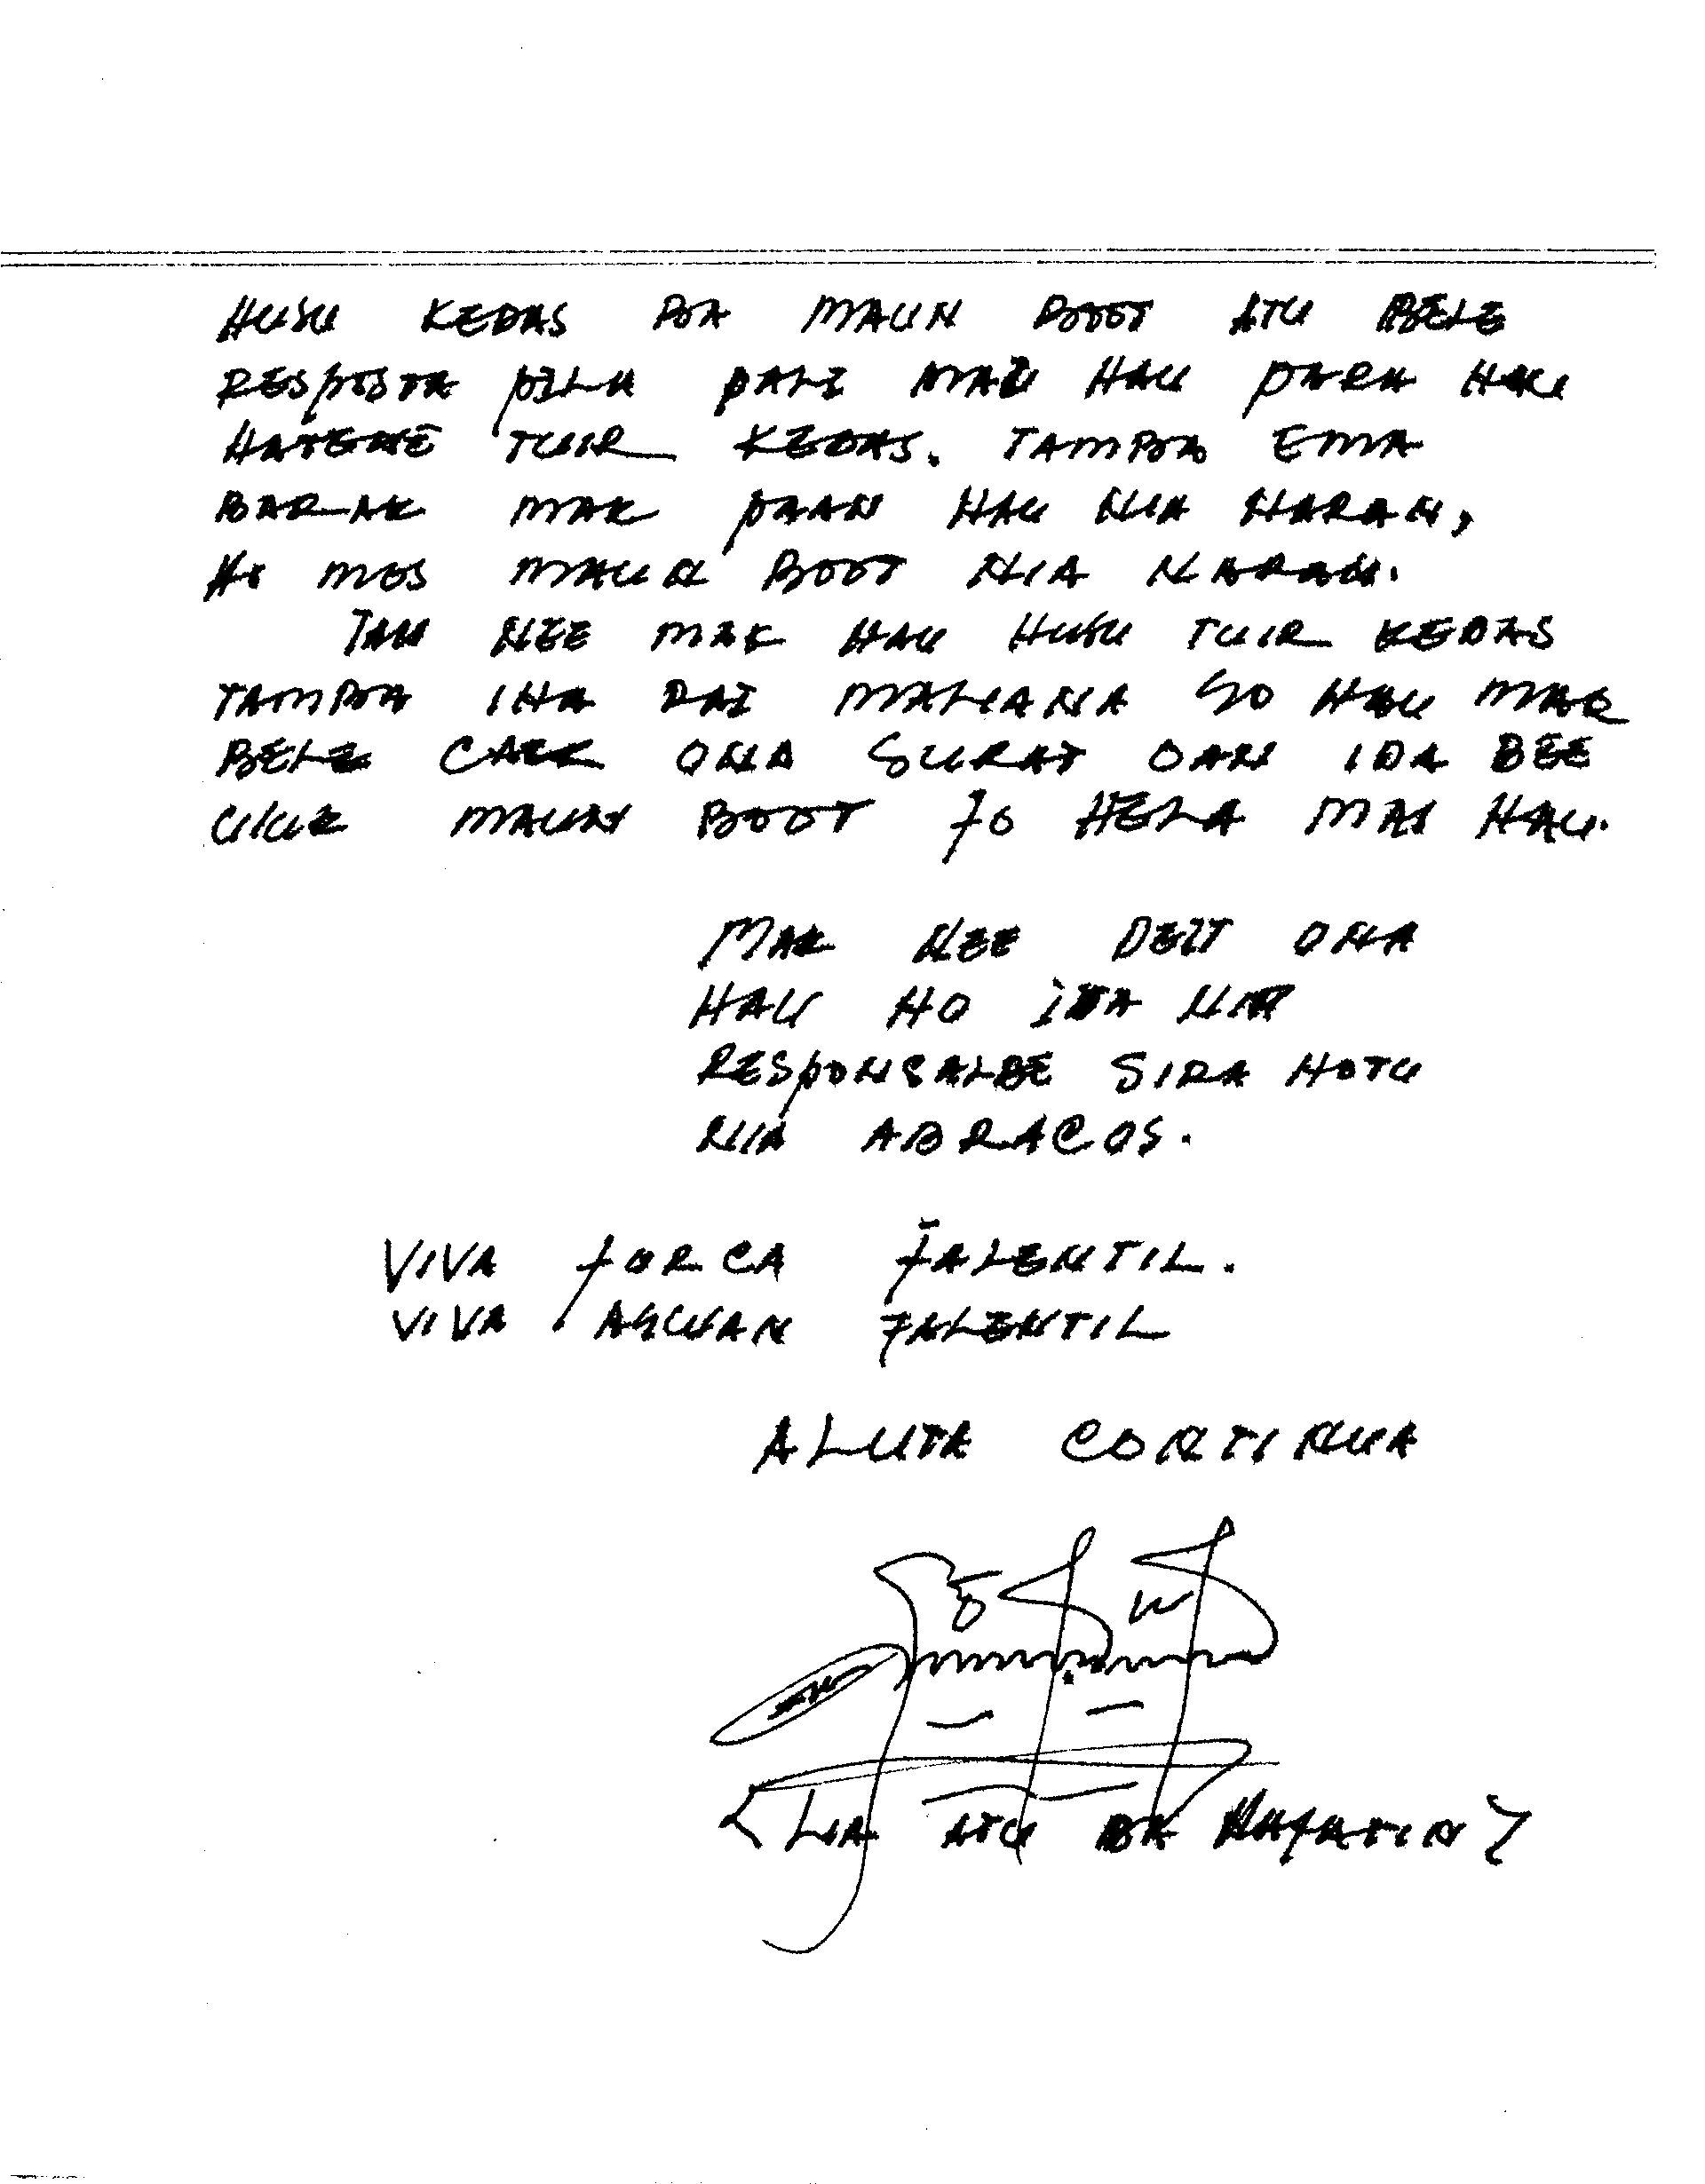 HUSU KEDAS BA MAUN BOOT ATU BELE
RESPOSTA PILA PALI MAI HAU PARA HAU
HATENE TUIR KEDAS. TAMBA EMA
BARAK MAK PAAN HAU NIA NARAN,
HO MOS MAUN BOOT NIA NARAN.
TAN NEE MAK HAU HUSU TUIR KEDAS
TAMBA IHA RAI MALIANA SO HAU MAK
BELE CAER ONA SURAT OAN IDA BEE
ULUK MAUN BOOT FO HELA MAI HAU.
MAK NEE DEIT ONA
HAU HO ITA NIA
RESPONSALBE SIRA HOTU
NIA ABRACOS.
VIVA FORCA FALENTIL.
VIVA ASWAN FALENTIL
ALUTA CONTINUA
< LIA ATU BA NAFATIN >